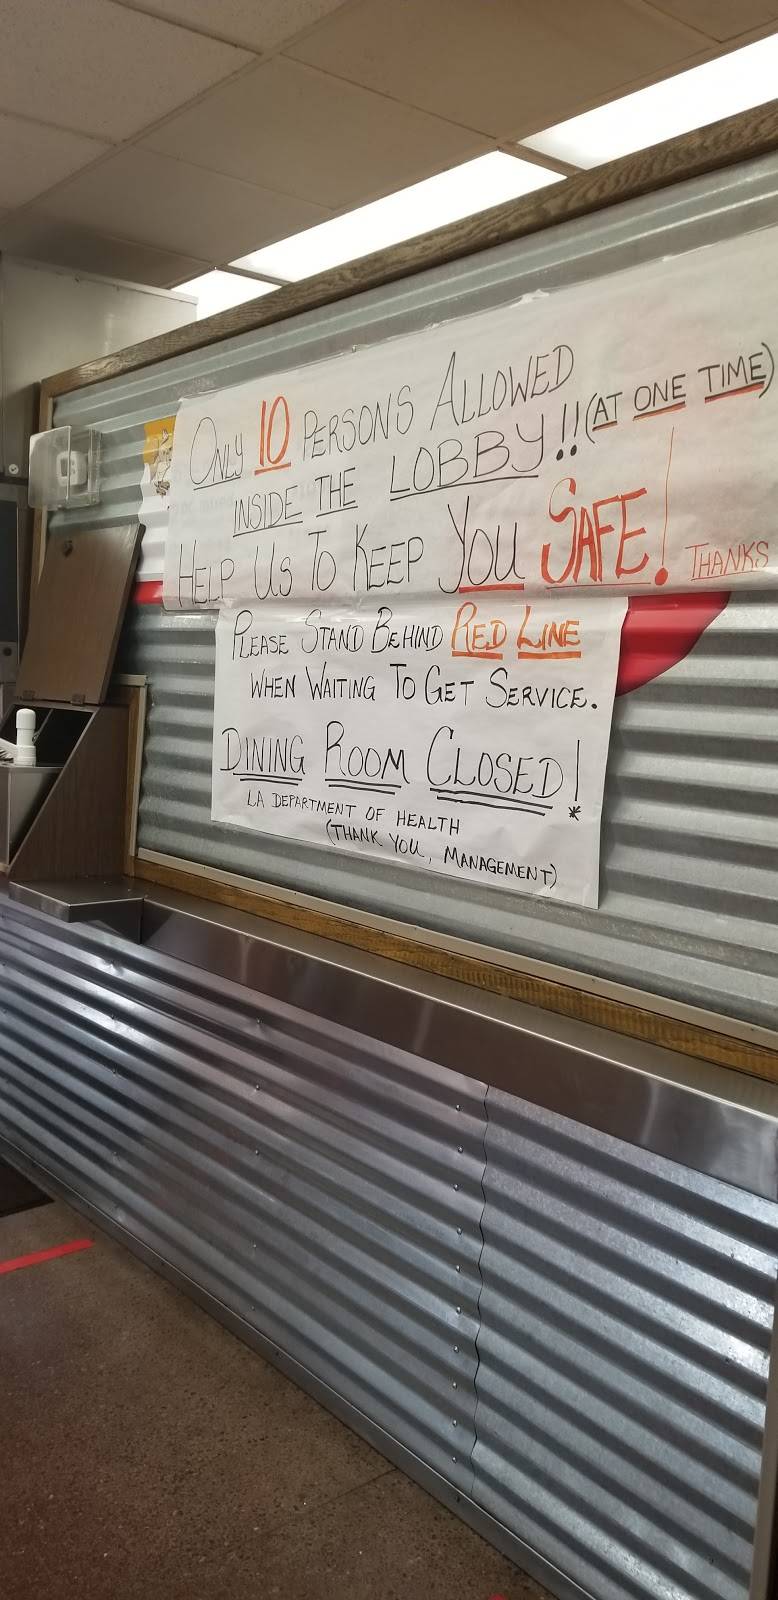 ONLY 10 PERSONS ALLOWED
INSIDE THE LOBBY!! (AT ONE TIME)
HELP US TO KEEP YOU SAFE! THANKS
PLEASE STAND BEHIND RED LINE
WHEN WAITING TO GET SERVICE.
DINING ROOM CLOSED!*
LA DEPARTMENT OF HEALTH
(THANK YOU, MANAGEMENT)